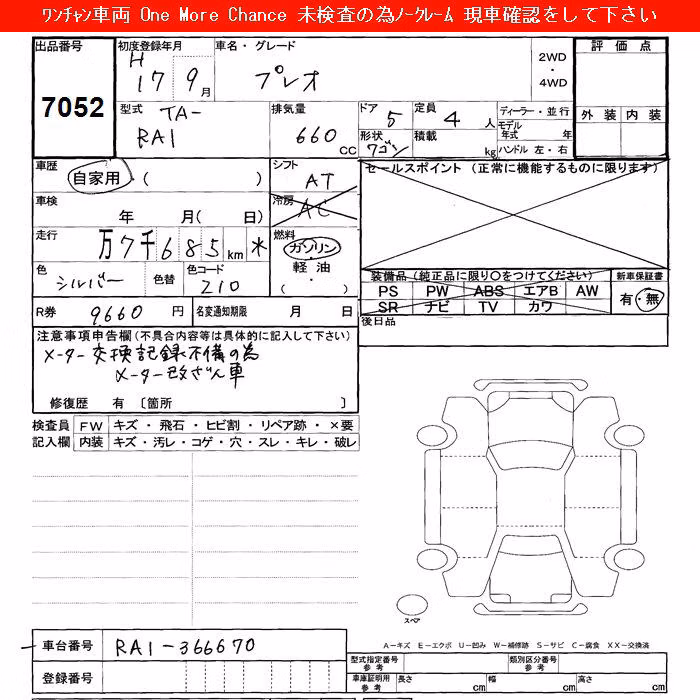 ﾜﾝﾁｬﾝ車両 One More Chance 未検査の為ﾉｰｸﾚｰﾑ 現車確認をして下さい
出品番号 初度登録年月 車名・グレード 評価点
H 17 9月 プレオ 2WD ・ 4WD
7052
外装 内装
型式 TA- 排気量 ドア 5 定員 4 人 ディーラー・並行
RA1 660 CC 形状 ワゴン 積載 kg モデル年式 年
ハンドル 左・右
車歴 自家用 ( ) シフト AT セールスポイント (正常に機能するものに限ります)
車検 年 月( 日) 冷房 AC
走行 万7千685km * 燃料 ガソリン
軽油
( )
色 シルバー 色替 色コード 210 装備品 (純正品に限り○をつけてください) 新車保証書
PS PW ABS エアB AW 有・無
SR ナビ TV カワ
R券 9660 円 名変通知期限 月 日 後日品
注意事項申告欄 (不具合内容等は具体的に記入して下さい)
メーター交換記録不備の為
メーター改ざん車
修復歴 有 〔箇所 〕
検査員 FW キズ・飛石・ヒビ割・リペア跡・×要
記入欄 内装 キズ・汚レ・コゲ・穴・スレ・キレ・破レ
スペア
車台番号 RA1-366670
A-キズ E-エクボ U-凹み W-補修跡 S-サビ C-腐食 XX-交換済
登録番号 型式指定番号 参考 類別区分番号 参考
車庫証明用 参考 長さ cm 幅 cm 高さ cm